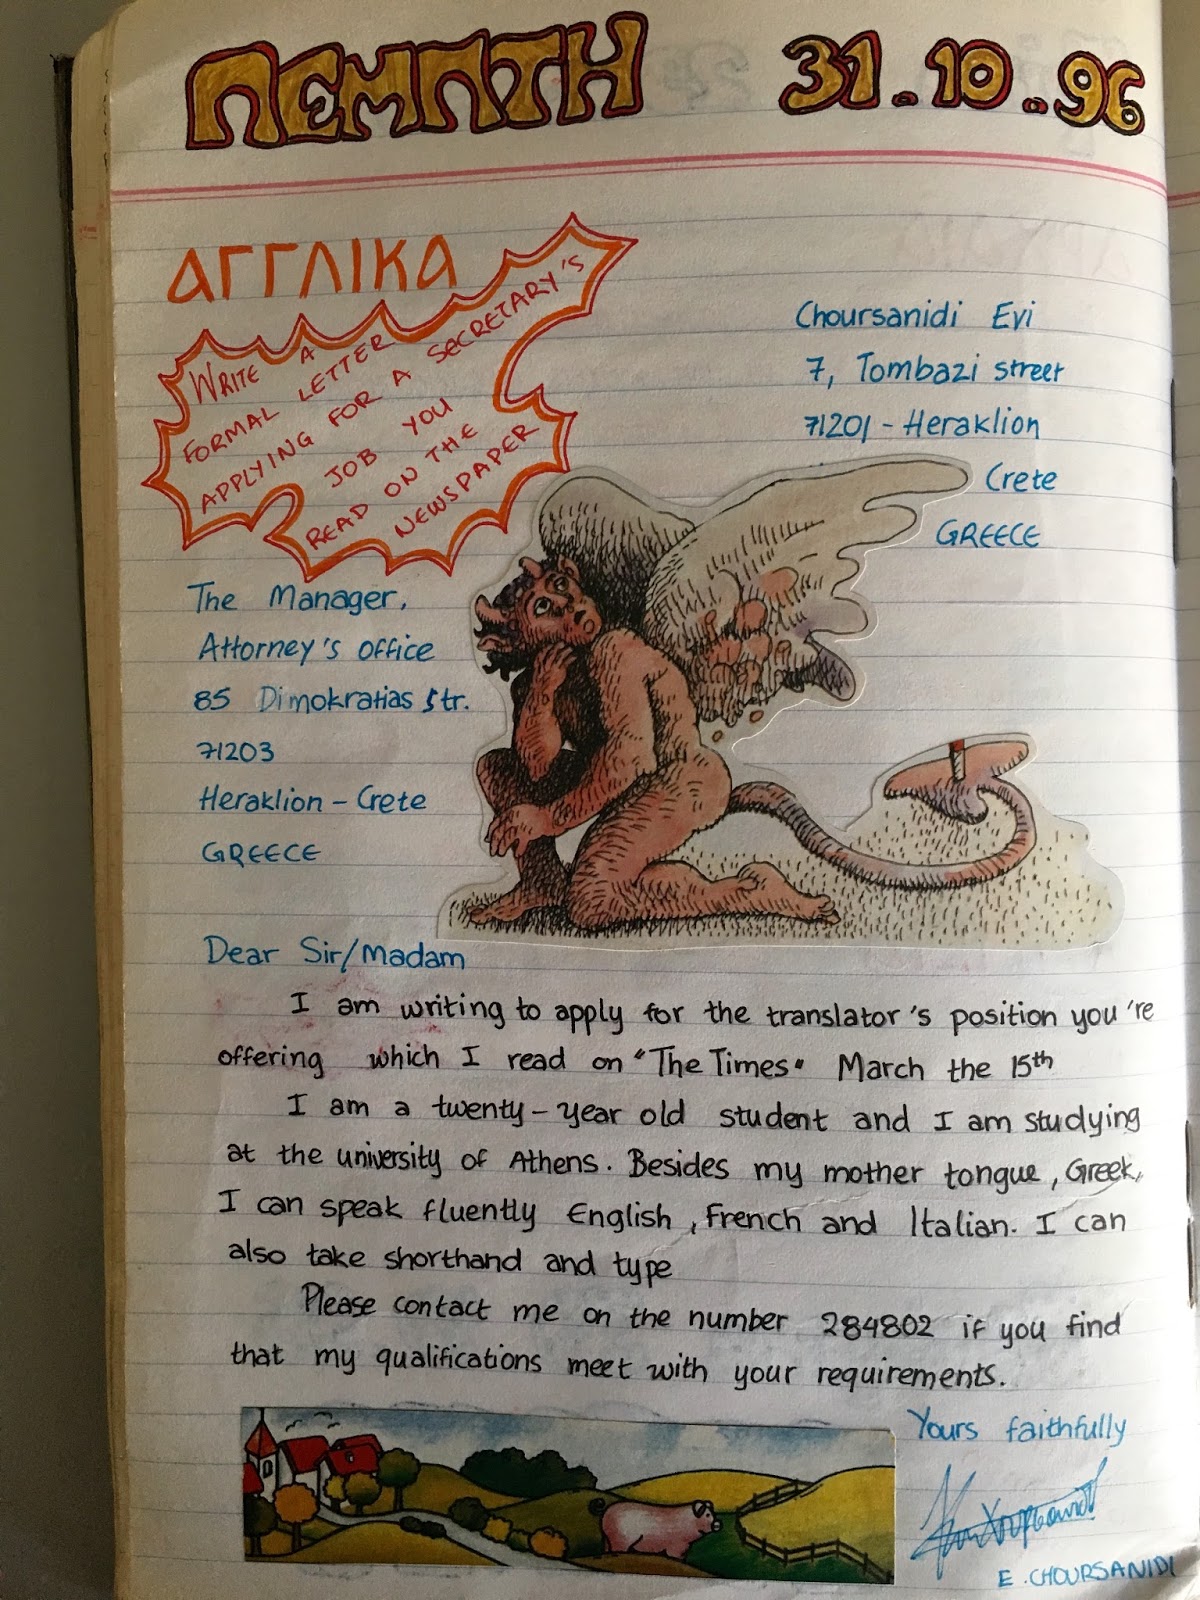 ΠΕΜΠΤΗ 31.10.96
ΑΓΓΛΙΚΑ
WRITE A
FORMAL LETTER
APPLYING FOR A SECRETARY'S
JOB YOU
READ ON THE
NEWSPAPER
Choursanidi Evi
7, Tombazi street
71201 - Heraklion
Crete
GREECE
The Manager,
Attorney's office
85 Dimokratias str.
71203
Heraklion - Crete
GREECE
Dear Sir/Madam
I am writing to apply for the translator's position you're
offering which I read on "The Times" March the 15th
I am a twenty-year old student and I am studying
at the university of Athens. Besides my mother tongue, Greek,
I can speak fluently English, French and Italian. I can
also take shorthand and type
Please contact me on the number 284802 if you find
that my qualifications meet with your requirements.
Yours faithfully
E. CHOURSANIDI